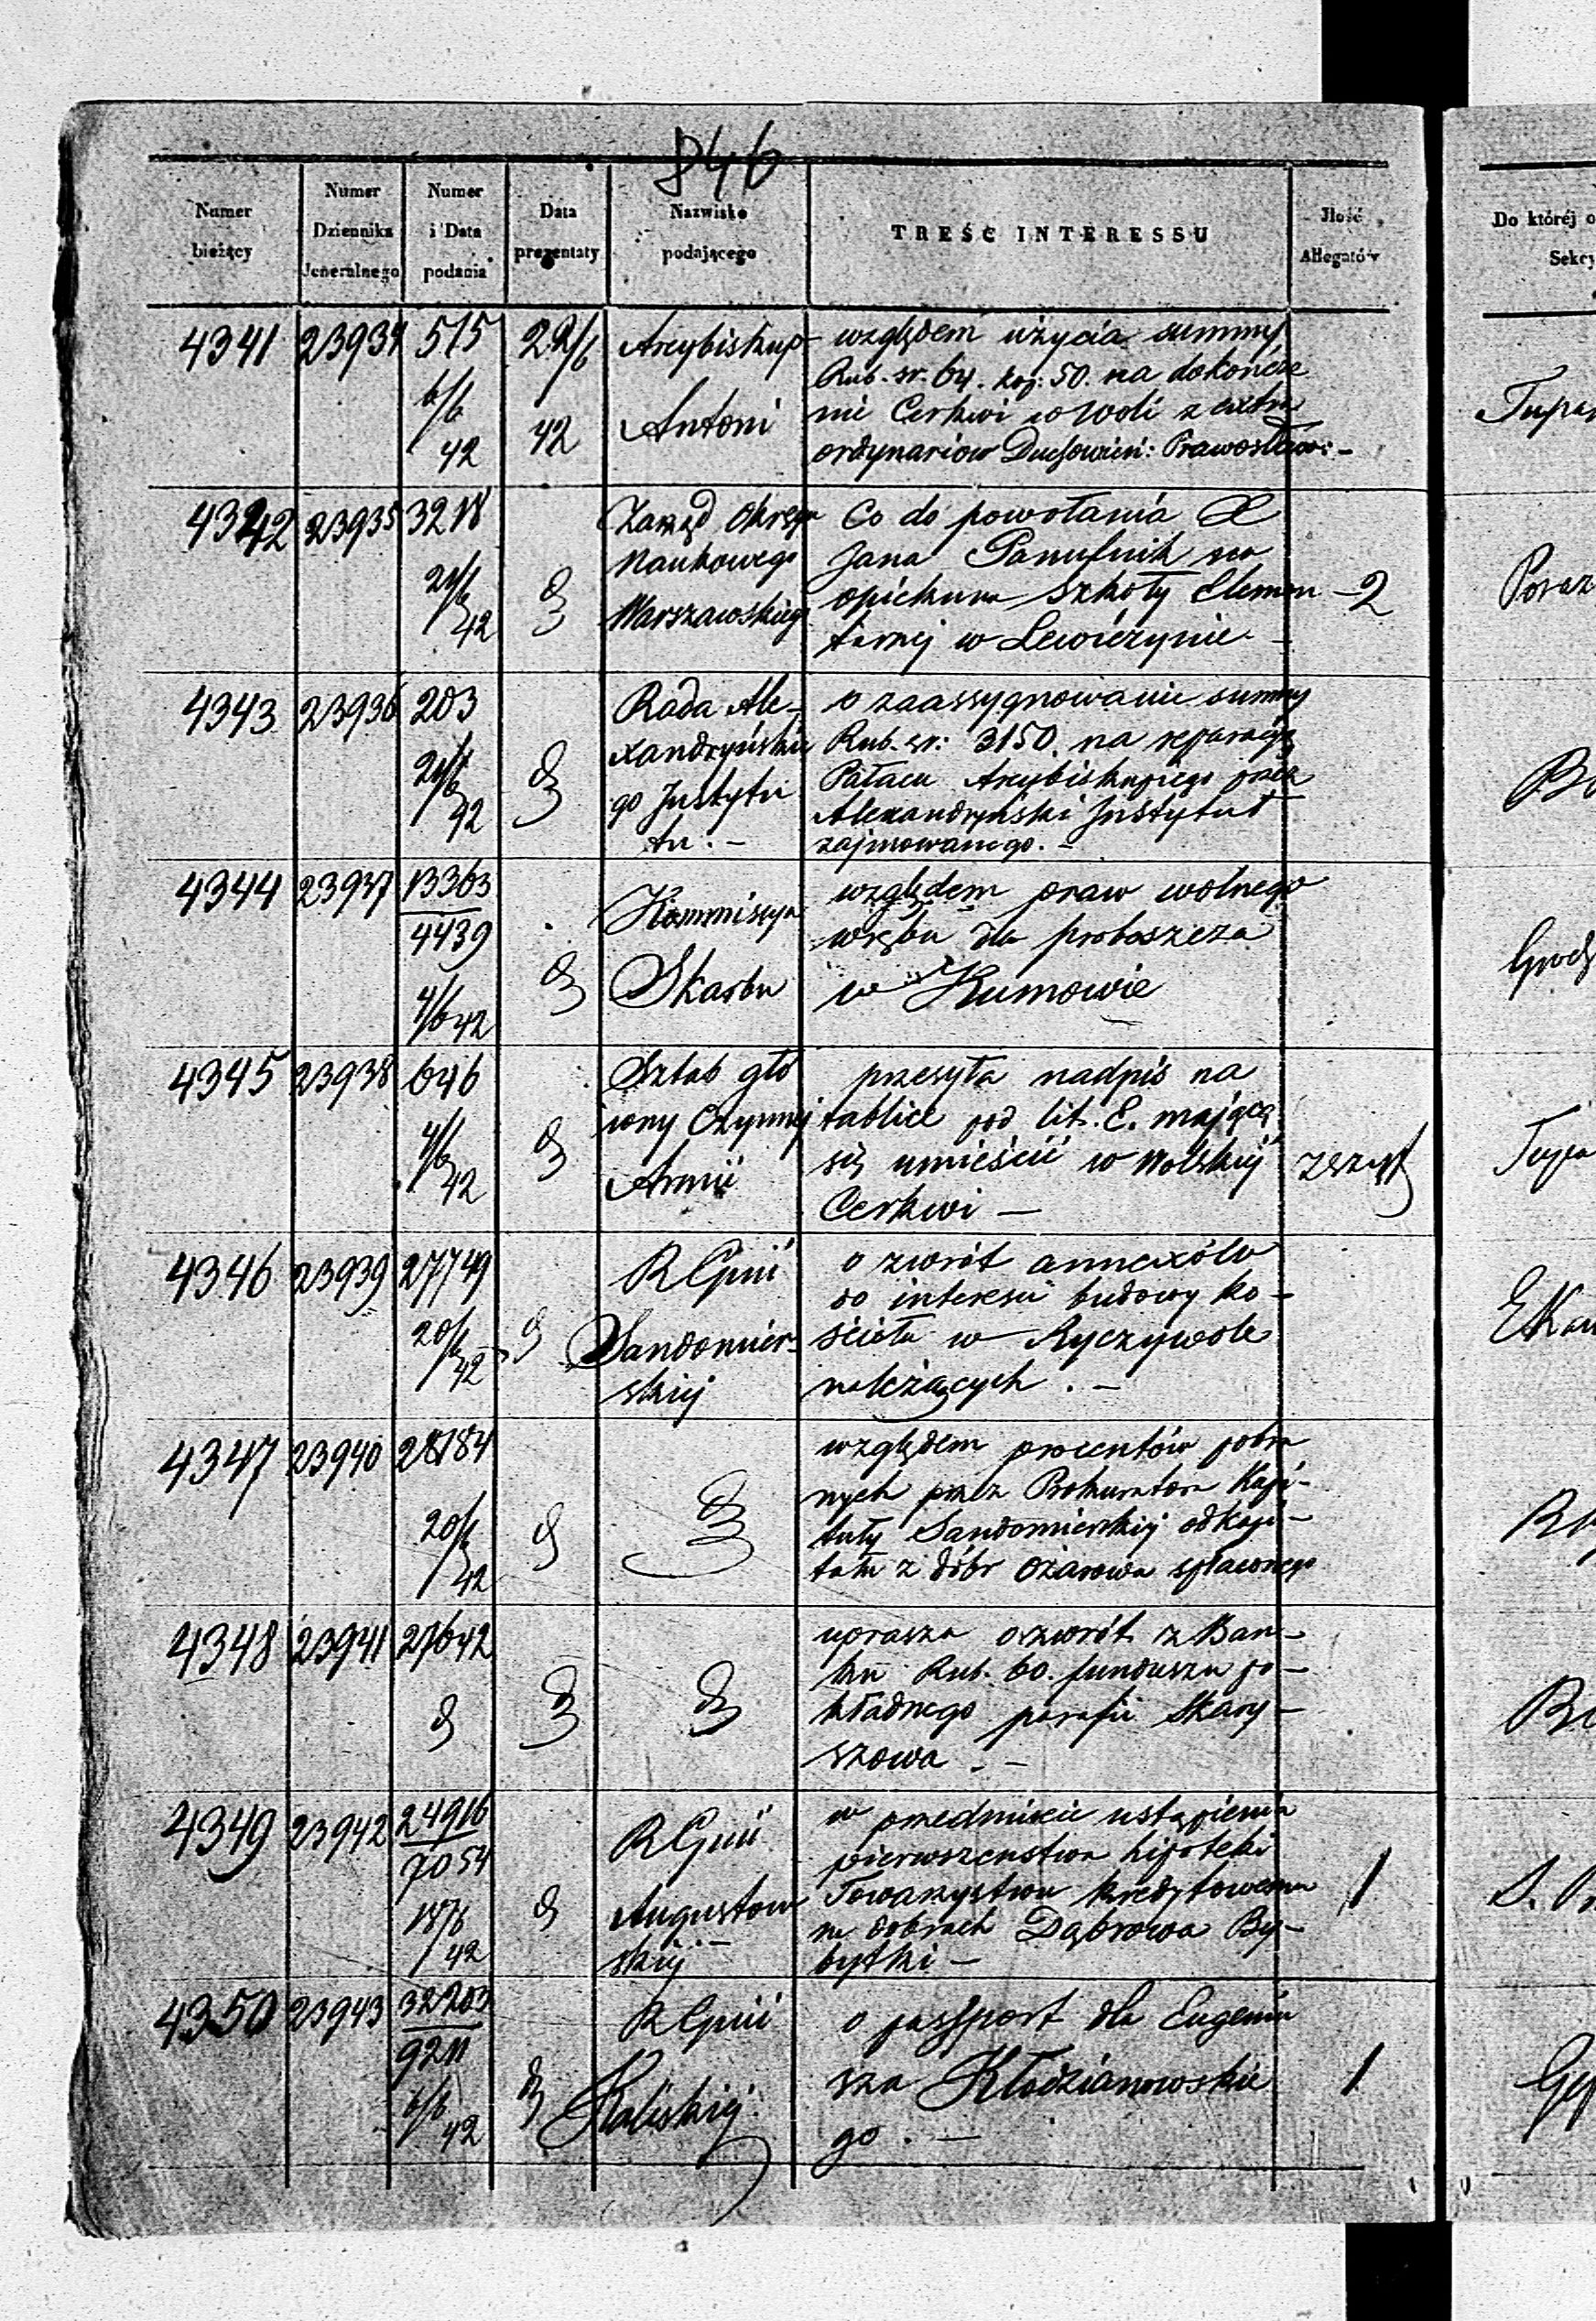 846
Numer bieżący
Numer Dziennika Jeneralnego
Numer i Data podania
Data prezentaty
Nazwisko podającego
TREŚĆ INTERESSU
Ilość Allegatów
Do któréj o
Sekcy
4341 23934 515 6/6 42 22/6 42
Arcybiskup
Antoni
względem użycia summy
Rub. sr. 64. kop: 50. na dokończe
nie Cerkwi w Woli z extra
ordynariow Duchowień: Prawosław: –
4342 23935 3218 21/6 42
Zarząd Okręgu
Naukowego
Warszawskiego
Co do powołania X
Jana Panufnik na
opiekuna szkoły Elemen
tarnej w Lewiczynie –
2
4343 23936 203 21/6 42
Rada Ale-
xandryńskie
go Instytu
tu. –
o zaassygnowanie summy
Rub. sr: 3150. na reparacyą
Pałacu Arcybiskupiego przez
Alexandryński Instytut
zajmowanego. –
4344 23937 13363
4439 4/6 42
Kommissya
Skarbu
względem praw wolnego
wrębu dla proboszcza
w Kumowie
4345 23938 646 4/6 42
Sztab głó
wny Czynnej
Armii
przesyła nadpis na
tablice pod lit. E. mającą
się umieścić w Wolskiej
Cerkwi –
zeszyt
4346 23939 27749 20/6 42
R Gnii
Sandomier-
skiej
o zwrót annexów
do interesu budowy ko-
ścioła w Ryczywole
należących. –
4347 23940 28184 20/6 42
względem procentów pobra
nych przez Prokuratora Kapi-
tuły Sandomierskiej od kapi-
tału z dóbr Ożarowa spłaconego
4348 23941 27642
uprasza o zwrót z Ban-
ku Rub. 60. funduszu po-
kładnego parafii Skary-
szowa. –
4349 23942 24916
7054 18/6 42
R Gnii
Augustow
skiej –
w przedmiocie ustąpienia
pierwszenstwa hipoteki
Towarzystwu kredytowemu
na dobrach Dąbrowa By-
bytki –
1
4350 23943 32203
9211 6/6 42
R Gnii
Kaliskiej
o passport dla Eugeniu
sza Kłodzianowskie
go. –
1